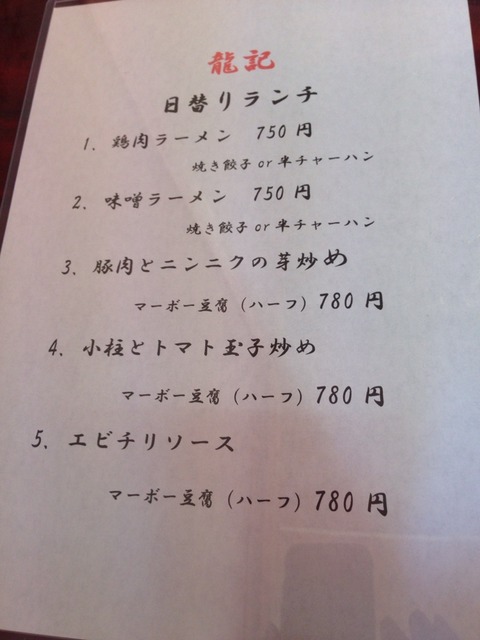 龍記
日替りランチ
1. 鶏肉ラーメン 750円
焼き餃子or半チャーハン
2. 味噌ラーメン 750円
焼き餃子or半チャーハン
3. 豚肉とニンニクの芽炒め
マーボー豆腐(ハーフ) 780円
4. 小柱とトマト玉子炒め
マーボー豆腐(ハーフ) 780円
5. エビチリソース
マーボー豆腐(ハーフ) 780円